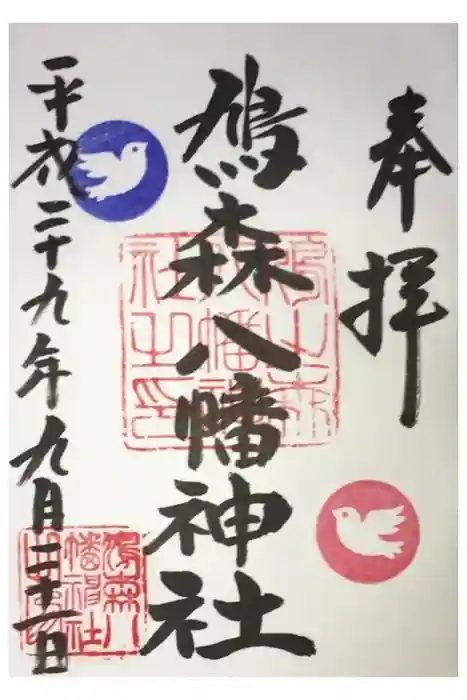 奉拝
鳩森八幡神社
平成二十九年九月二十一日
鳩之森
八幡神
社之印
鳩森八
幡神社